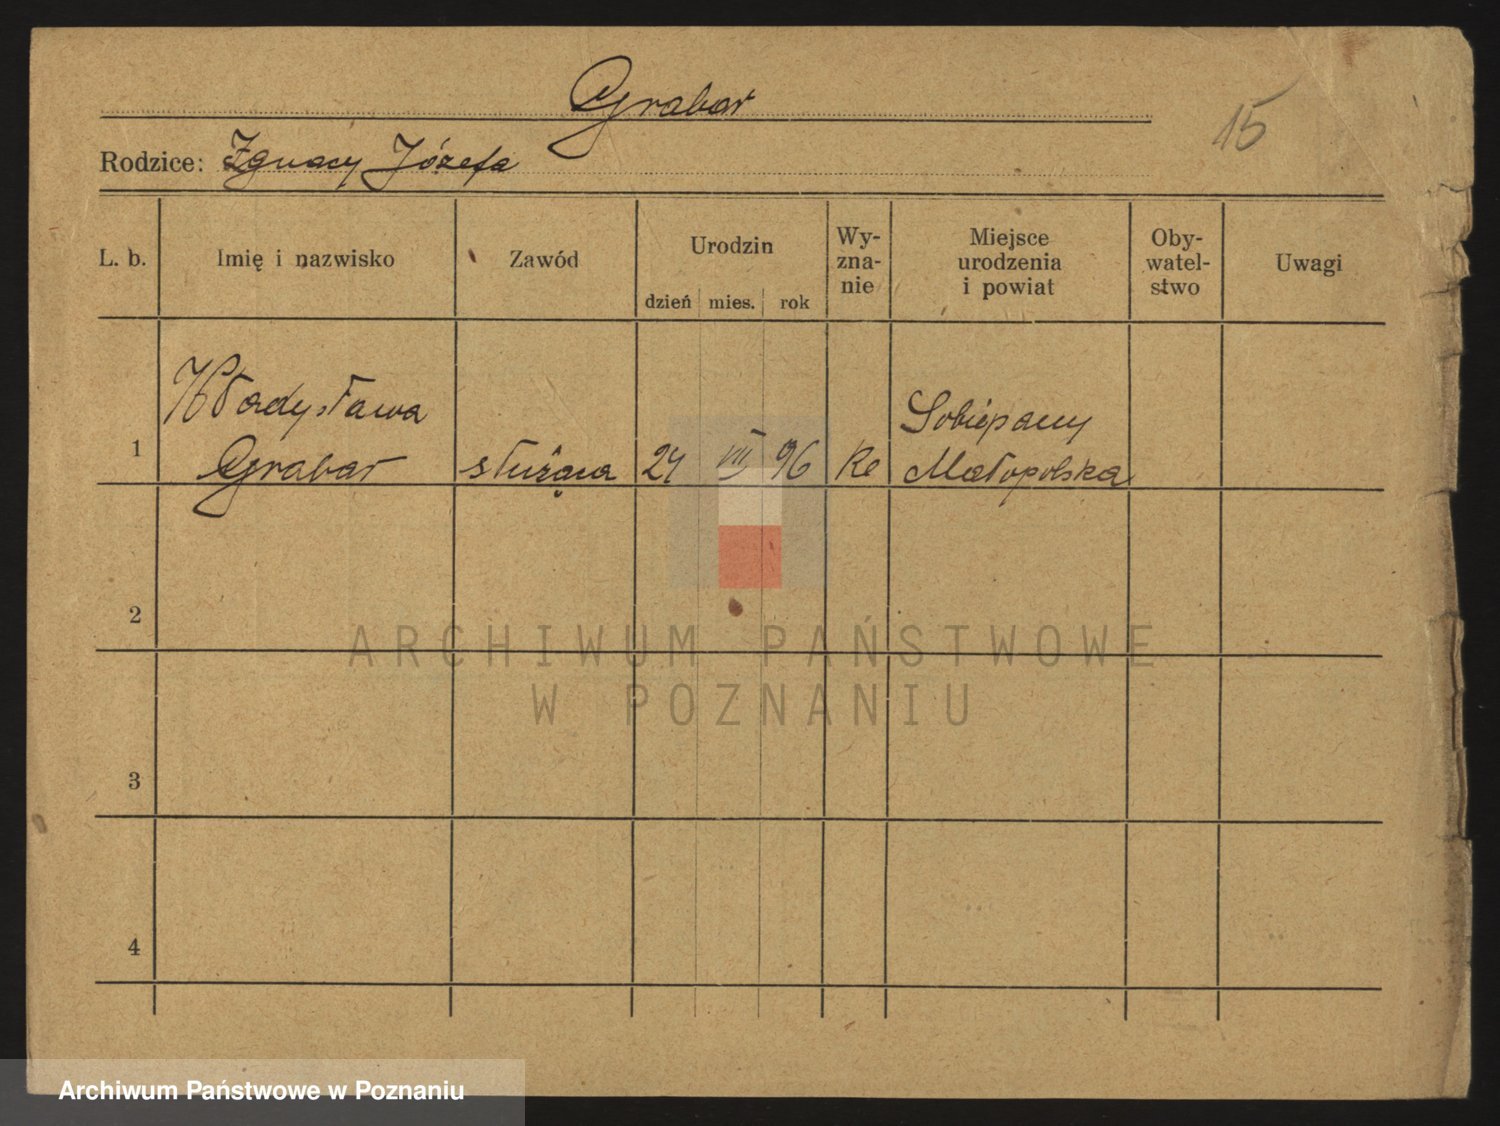 Grabar
15
Rodzice: Ignacy Józefa
L. b.
Imię i nazwisko
Zawód
Urodzin
dzień mies. rok
Wy-
zna-
nie
Miejsce
urodzenia
i powiat
Oby-
watel-
stwo
Uwagi
1
Władysława
Grabar
służąca
24 VII 96
Sobiepany
Małopolska
2
3
4
ARCHIWUM PAŃSTWOWE
W POZNANIU
Archiwum Państwowe w Poznaniu